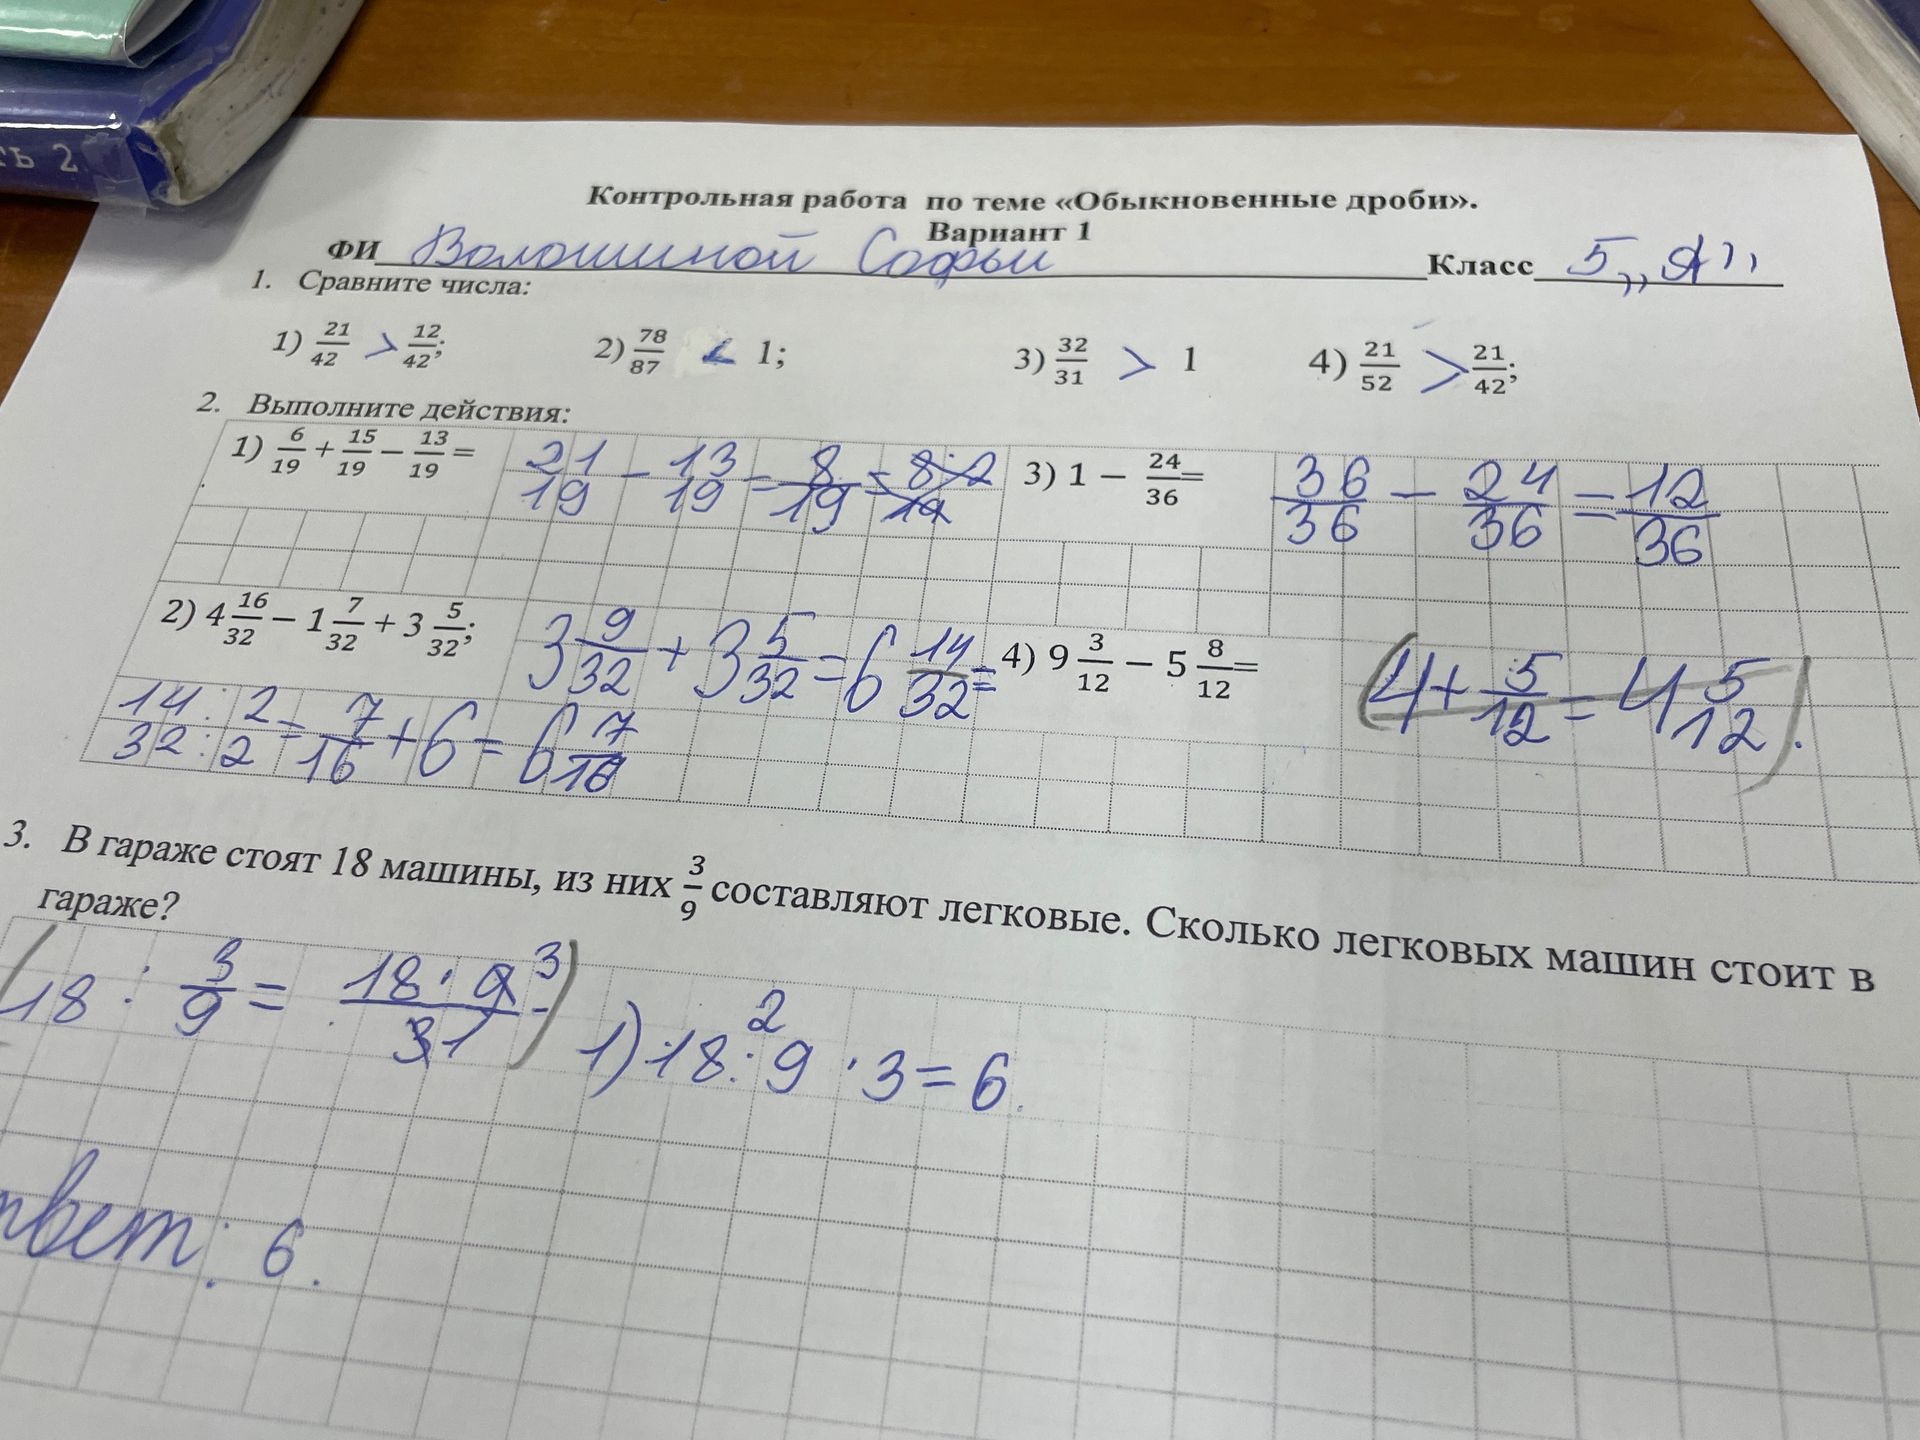 ТЬ 2
Контрольная работа по теме «Обыкновенные дроби».
Вариант 1
ФИ Волошиной Софьи Класс 5 „А"
1. Сравните числа:
1) 21/42 > 12/42; 2) 78/87 < 1; 3) 32/31 > 1 4) 21/52 > 21/42;
2. Выполните действия:
1) 6/19 + 15/19 − 13/19 = 21/19 − 13/19 = 8/19 = 8:2/19 3) 1 − 24/36 = 36/36 − 24/36 = 12/36
2) 4 16/32 − 1 7/32 + 3 5/32; 3 9/32 + 3 5/32 = 6 14/32 = 4) 9 3/12 − 5 8/12 = (4 + 5/12 = 4 5/12).
14:2/32:2 = 7/16 + 6 = 6 7/16
3. В гараже стоят 18 машины, из них 3/9 составляют легковые. Сколько легковых машин стоит в
гараже?
(18 : 3/9 = 18 · 9 3/31 -) 1) 18 : 9 2 · 3 = 6.
твет: 6.